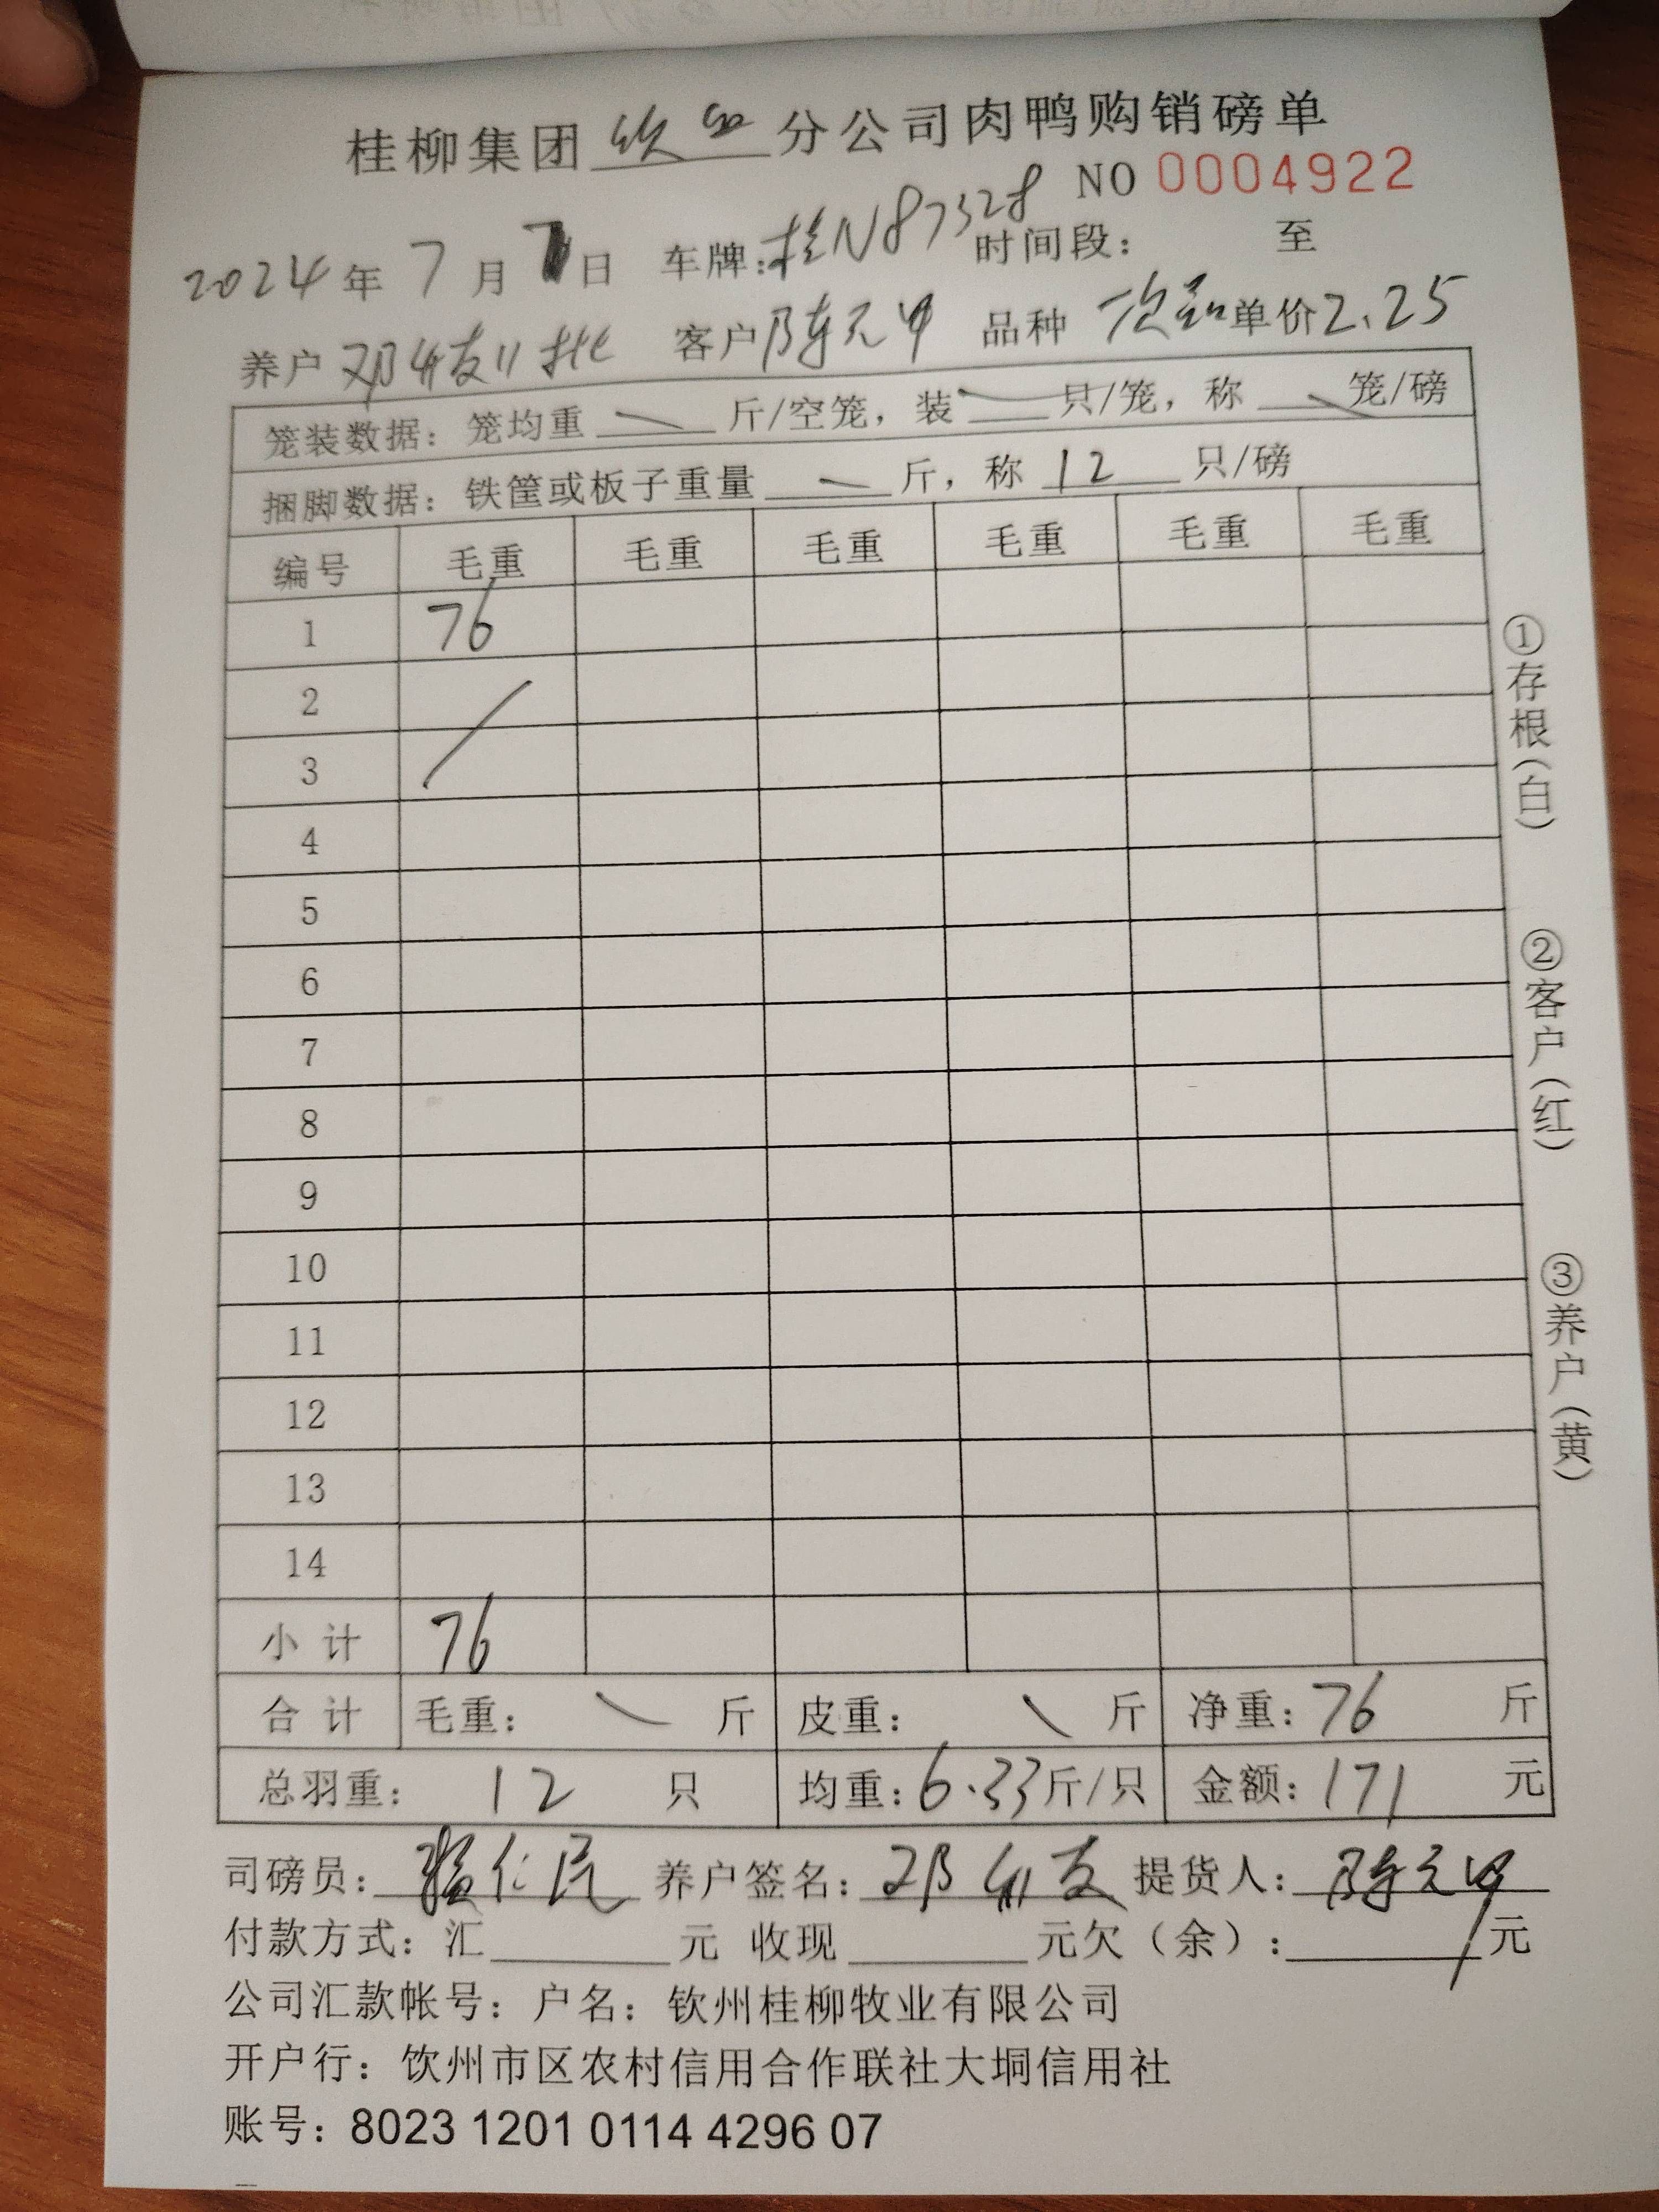 桂柳集团 钦州 分公司肉鸭购销磅单
NO 0004922
2024年 7月 7日 车牌:桂N87328 时间段: 至
养户 邓 11批 客户 陈元甲 品种 次 单价 2.25
笼装数据: 笼均重 斤/空笼, 装 只/笼, 称 笼/磅
捆脚数据: 铁筐或板子重量 斤, 称 12 只/磅
编号 毛重 毛重 毛重 毛重 毛重 毛重
1 76
2
3
4
5
6
7
8
9
10
11
12
13
14
小 计 76
合 计 毛重: 斤 皮重: 斤 净重: 76 斤
总羽重: 12 只 均重: 6.33 斤/只 金额: 171 元
司磅员: 仁民 养户签名: 邓 提货人: 陈元甲
付款方式: 汇 元 收现 元欠(余): 元
公司汇款帐号: 户名: 钦州桂柳牧业有限公司
开户行: 饮州市区农村信用合作联社大垌信用社
账号: 8023 1201 0114 4296 07
①存根(白)
②客户(红)
③养户(黄)